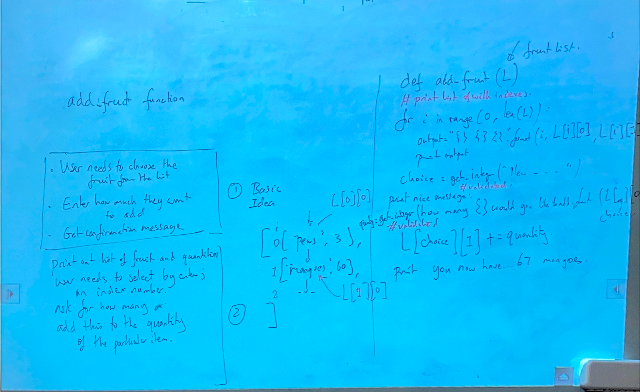 add_fruit function
• User needs to choose the
fruit from the list
• Enter how much they want
to add
• Get confirmation message
Print out list of fruit and quantities
User needs to select by entering
an index number.
Ask for how many
add this to the quantity
of the particular item.
① Basic
Idea
L[0][0]
[ 0[ 'pears', 3],
1['mangoes', 60],
2
]
L[1][0]
②
fruit list.
def add_fruit (L)
# print list with indexes.
for i in range (0, len(L)):
output = "{} {} {}".format (i, L[i][0], L[i][1]
print output
choice = get_integer ("
# validated
print nice message:
get_integer (how many {} would you like to add
# validated
L[choice][1] += quantity.
print you now have... 67 mangoes.